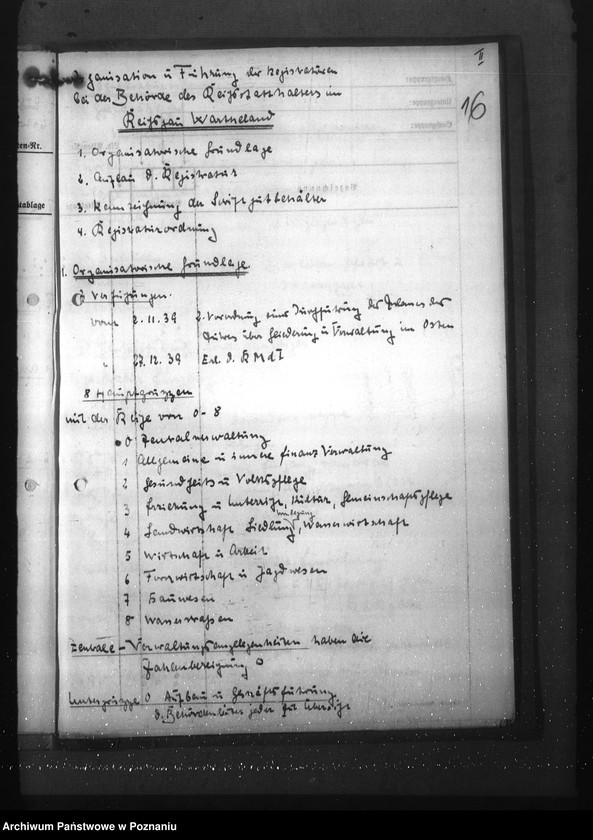 II
16
Organisation u Führung der Registraturen
bei der Behörde des Reichsstatthalters im
Reichsgau Wartheland
1. Organisatorische Grundlage
2. Aufbau d. Registratur
3. Kennzeichnung der Schriftgutbehälter
4. Registraturordnung
1. Organisatorische Grundlage
2 Verfügungen.
vom 2.11.39 2. Verordnung zur Durchführung des Erlasses des
Führers über Gliederung u Verwaltung im Osten
" 27.12.39 Erl. d. RMdI
8 Hauptgruppen
mit der Reihe von 0-8
0 Zentralverwaltung
1 Allgemeine u innere Finanz Verwaltung
2 Gesundheits u Volkspflege
3 Erziehung u Unterricht, Kultur, Gemeinschaftspflege
Umlegung
4 Landwirtschaft Siedlung, Wasserwirtschaft
5 Wirtschaft u Arbeit
6 Forstwirtschaft u Jagdwesen
7 Bauwesen
8 Wasserstraßen
Zentrale-Verwaltungsangelegenheiten haben die
Zahlenbezeichnung 0
Untergruppe 0 Aufbau u Geschäftsführung
d. Behörden jeder Art
en-Nr.
tablage
Archiwum Państwowe w Poznaniu